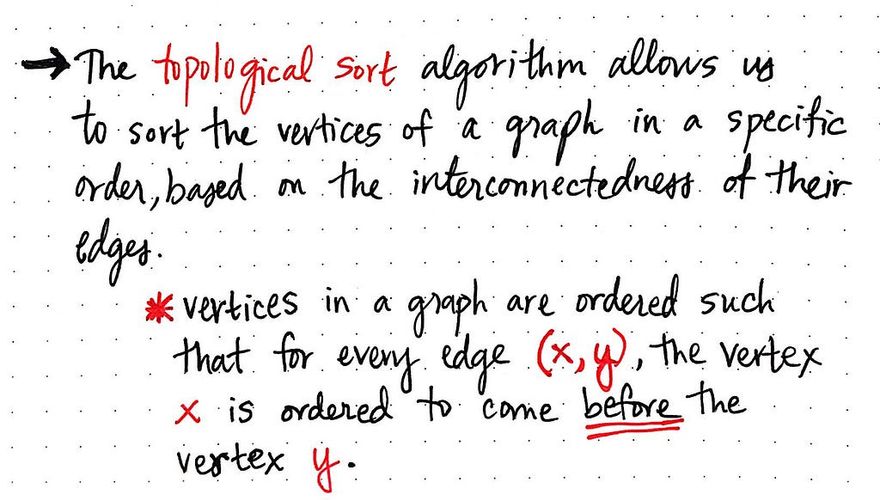 → The topological sort algorithm allows us
to sort the vertices of a graph in a specific
order, based on the interconnectedness of their
edges.
* vertices in a graph are ordered such
that for every edge (x, y), the vertex
x is ordered to come before the
vertex y.